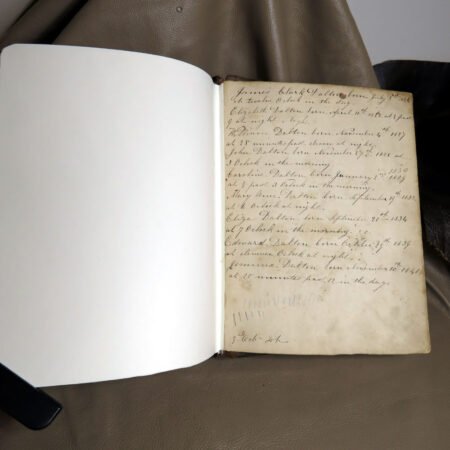 James Clark Dalton born July
at twelve Oclock in the day
Elizabeth Dalton born April 11th at ½ past
9 at night
William Dalton born November 4th 1827
at 25 minutes past eleven at night
John Dalton born November 27th 1828 at
3 Oclock in the morning
Caroline Dalton born January 3rd
at ½ past 3 Oclock in the morning
Mary Ann Dalton born September 19th 1832
at 6 Oclock at night
Eliza Dalton born September 20th 1834
at 7 Oclock in the morning
Edward Dalton born October 29th 1839
at eleven Oclock at night
Jemima Dalton born November 10th 1841
at 20 minutes past 12 in the day